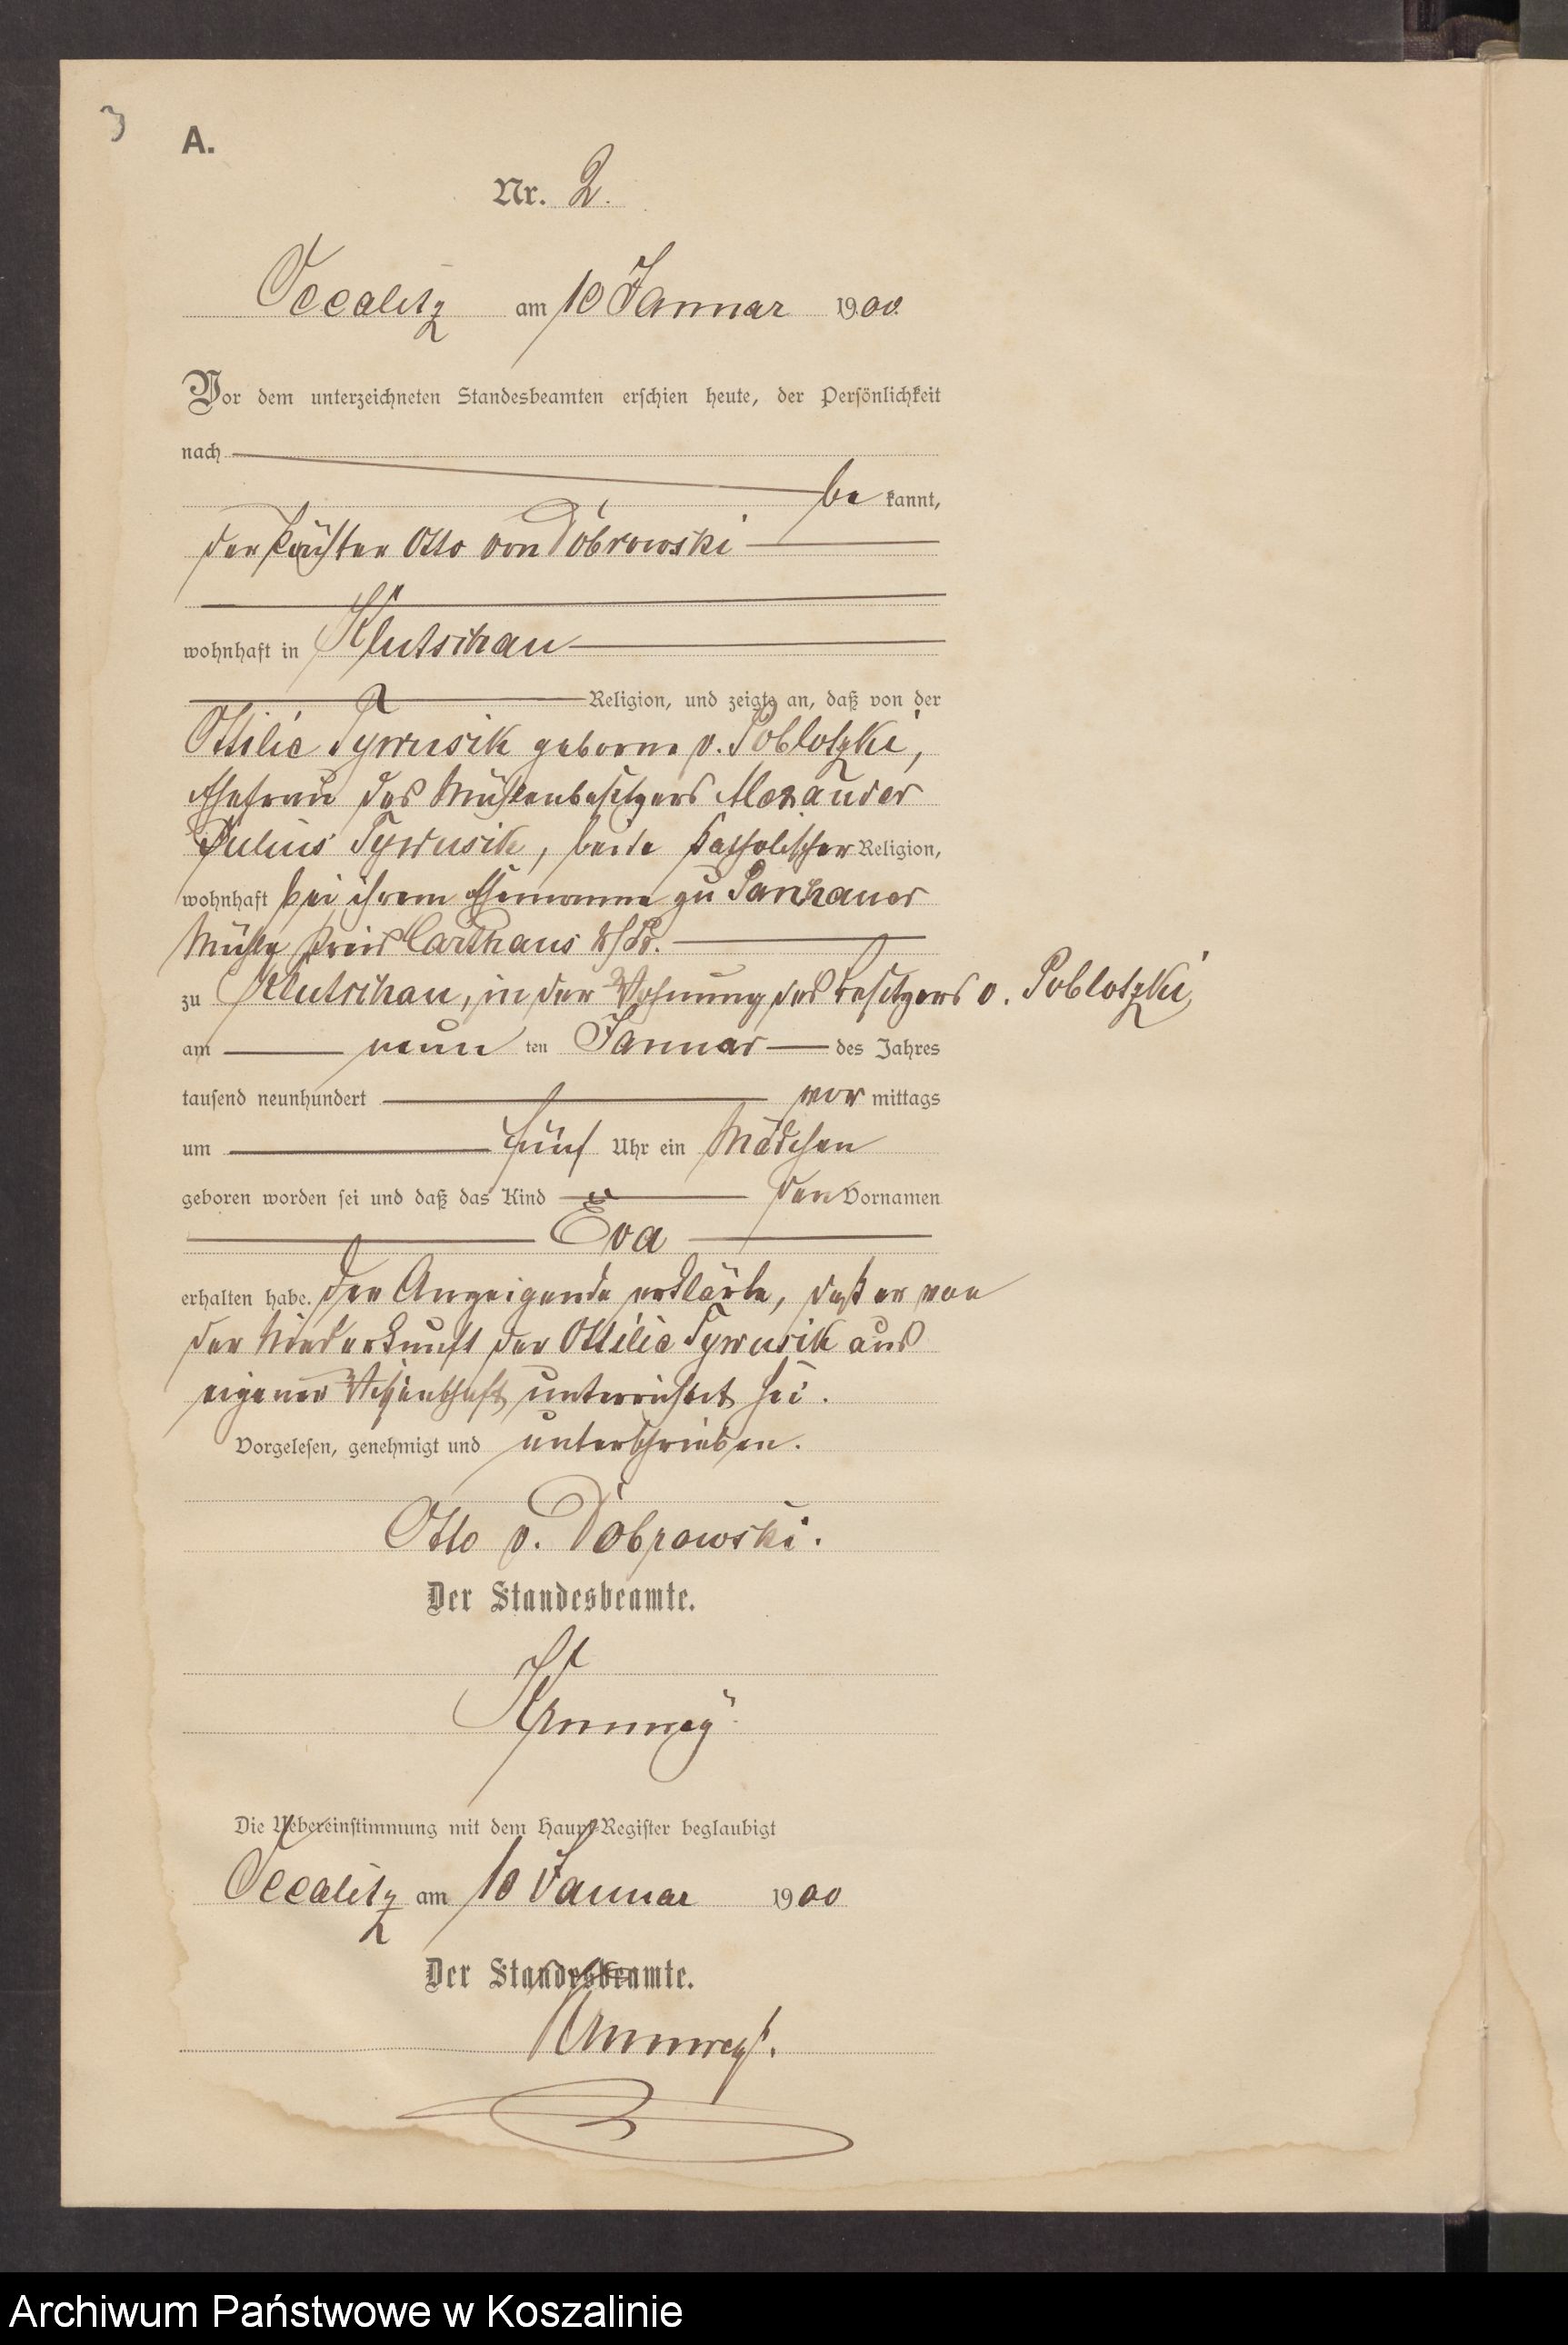 3
A.
Nr. 2.
Occalitz am 10 Januar 1900.
Vor dem unterzeichneten Standesbeamten erschien heute, der Persönlichkeit
nach
be kannt,
der Pächter Otto von Dobrowski
wohnhaft in Klutschau
Religion, und zeigte an, daß von der
Ottilie Tywusik geborne v. Poblotzki,
Ehefrau des Mühlenbesitzers Alexander
Julius Tywusik, beide katholischer Religion,
wohnhaft bei ihrem Ehemanne zu
Mühle Kreis Carthaus W/Pr.
zu Klutschau, in der Wohnung des Besitzers v. Poblotzki,
am neun ten Januar des Jahres
tausend neunhundert vor mittags
um fünf Uhr ein Mädchen
geboren worden sei und daß das Kind den Vornamen
Eva
erhalten habe. Der Anzeigende erklärte, daß er von
der Niederkunft der Ottilie Tywusik aus
eigener Wissenschaft unterrichtet sei.
Vorgelesen, genehmigt und unterschrieben.
Otto v. Dobrowski.
Der Standesbeamte.
Die Uebereinstimmung mit dem Haupt-Register beglaubigt
Occalitz am 10 Januar 1900
Der Standesbeamte.
Archiwum Państwowe w Koszalinie